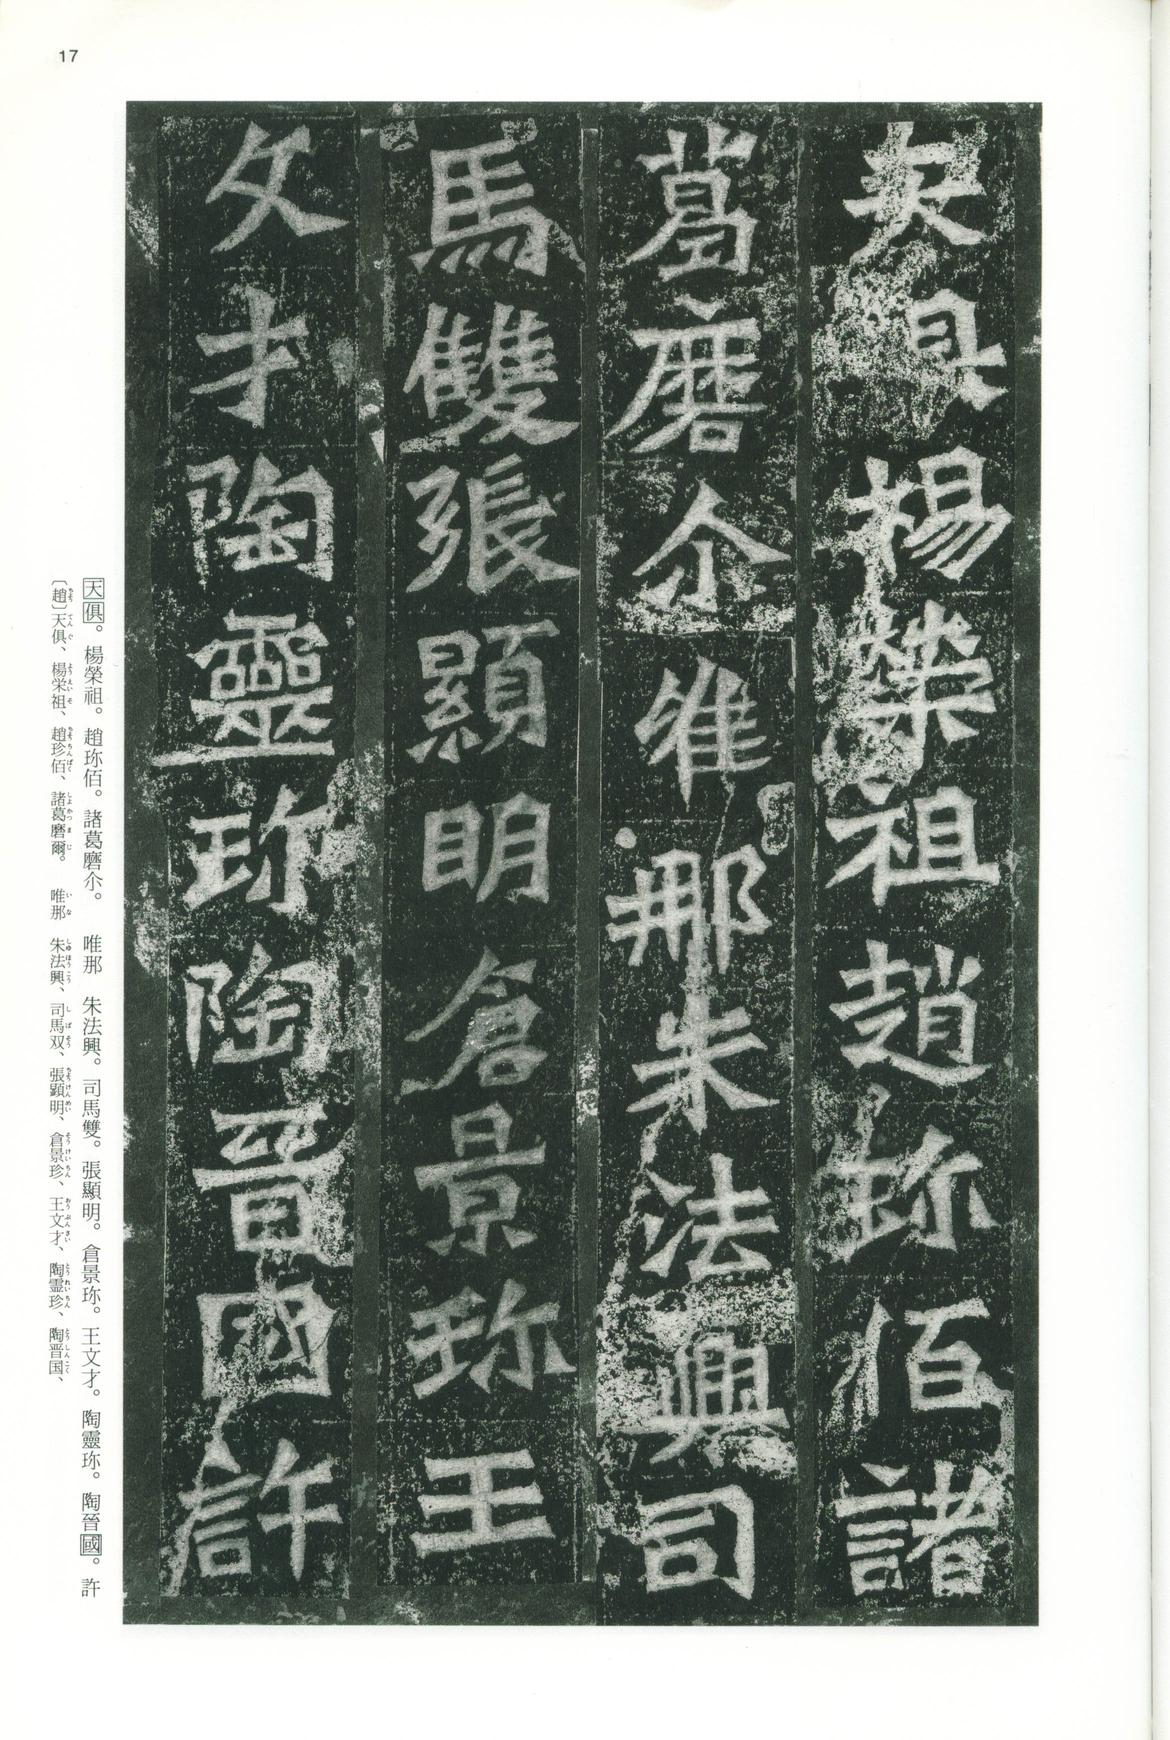 17
天俱楊榮祖趙珎佰諸
葛磨尒唯那朱法興司
馬雙張顯明倉景珎王
文才陶靈珎陶晉國許
天俱。楊榮祖。趙珎佰。諸葛磨尒。 唯那 朱法興。司馬雙。張顯明。倉景珎。王文才。陶靈珎。陶晉國。許
〔趙〕天俱、楊栄祖、趙珍佰、諸葛磨爾。 唯那 朱法興、司馬双、張顕明、倉景珍、王文才、陶霊珍、陶晋国、